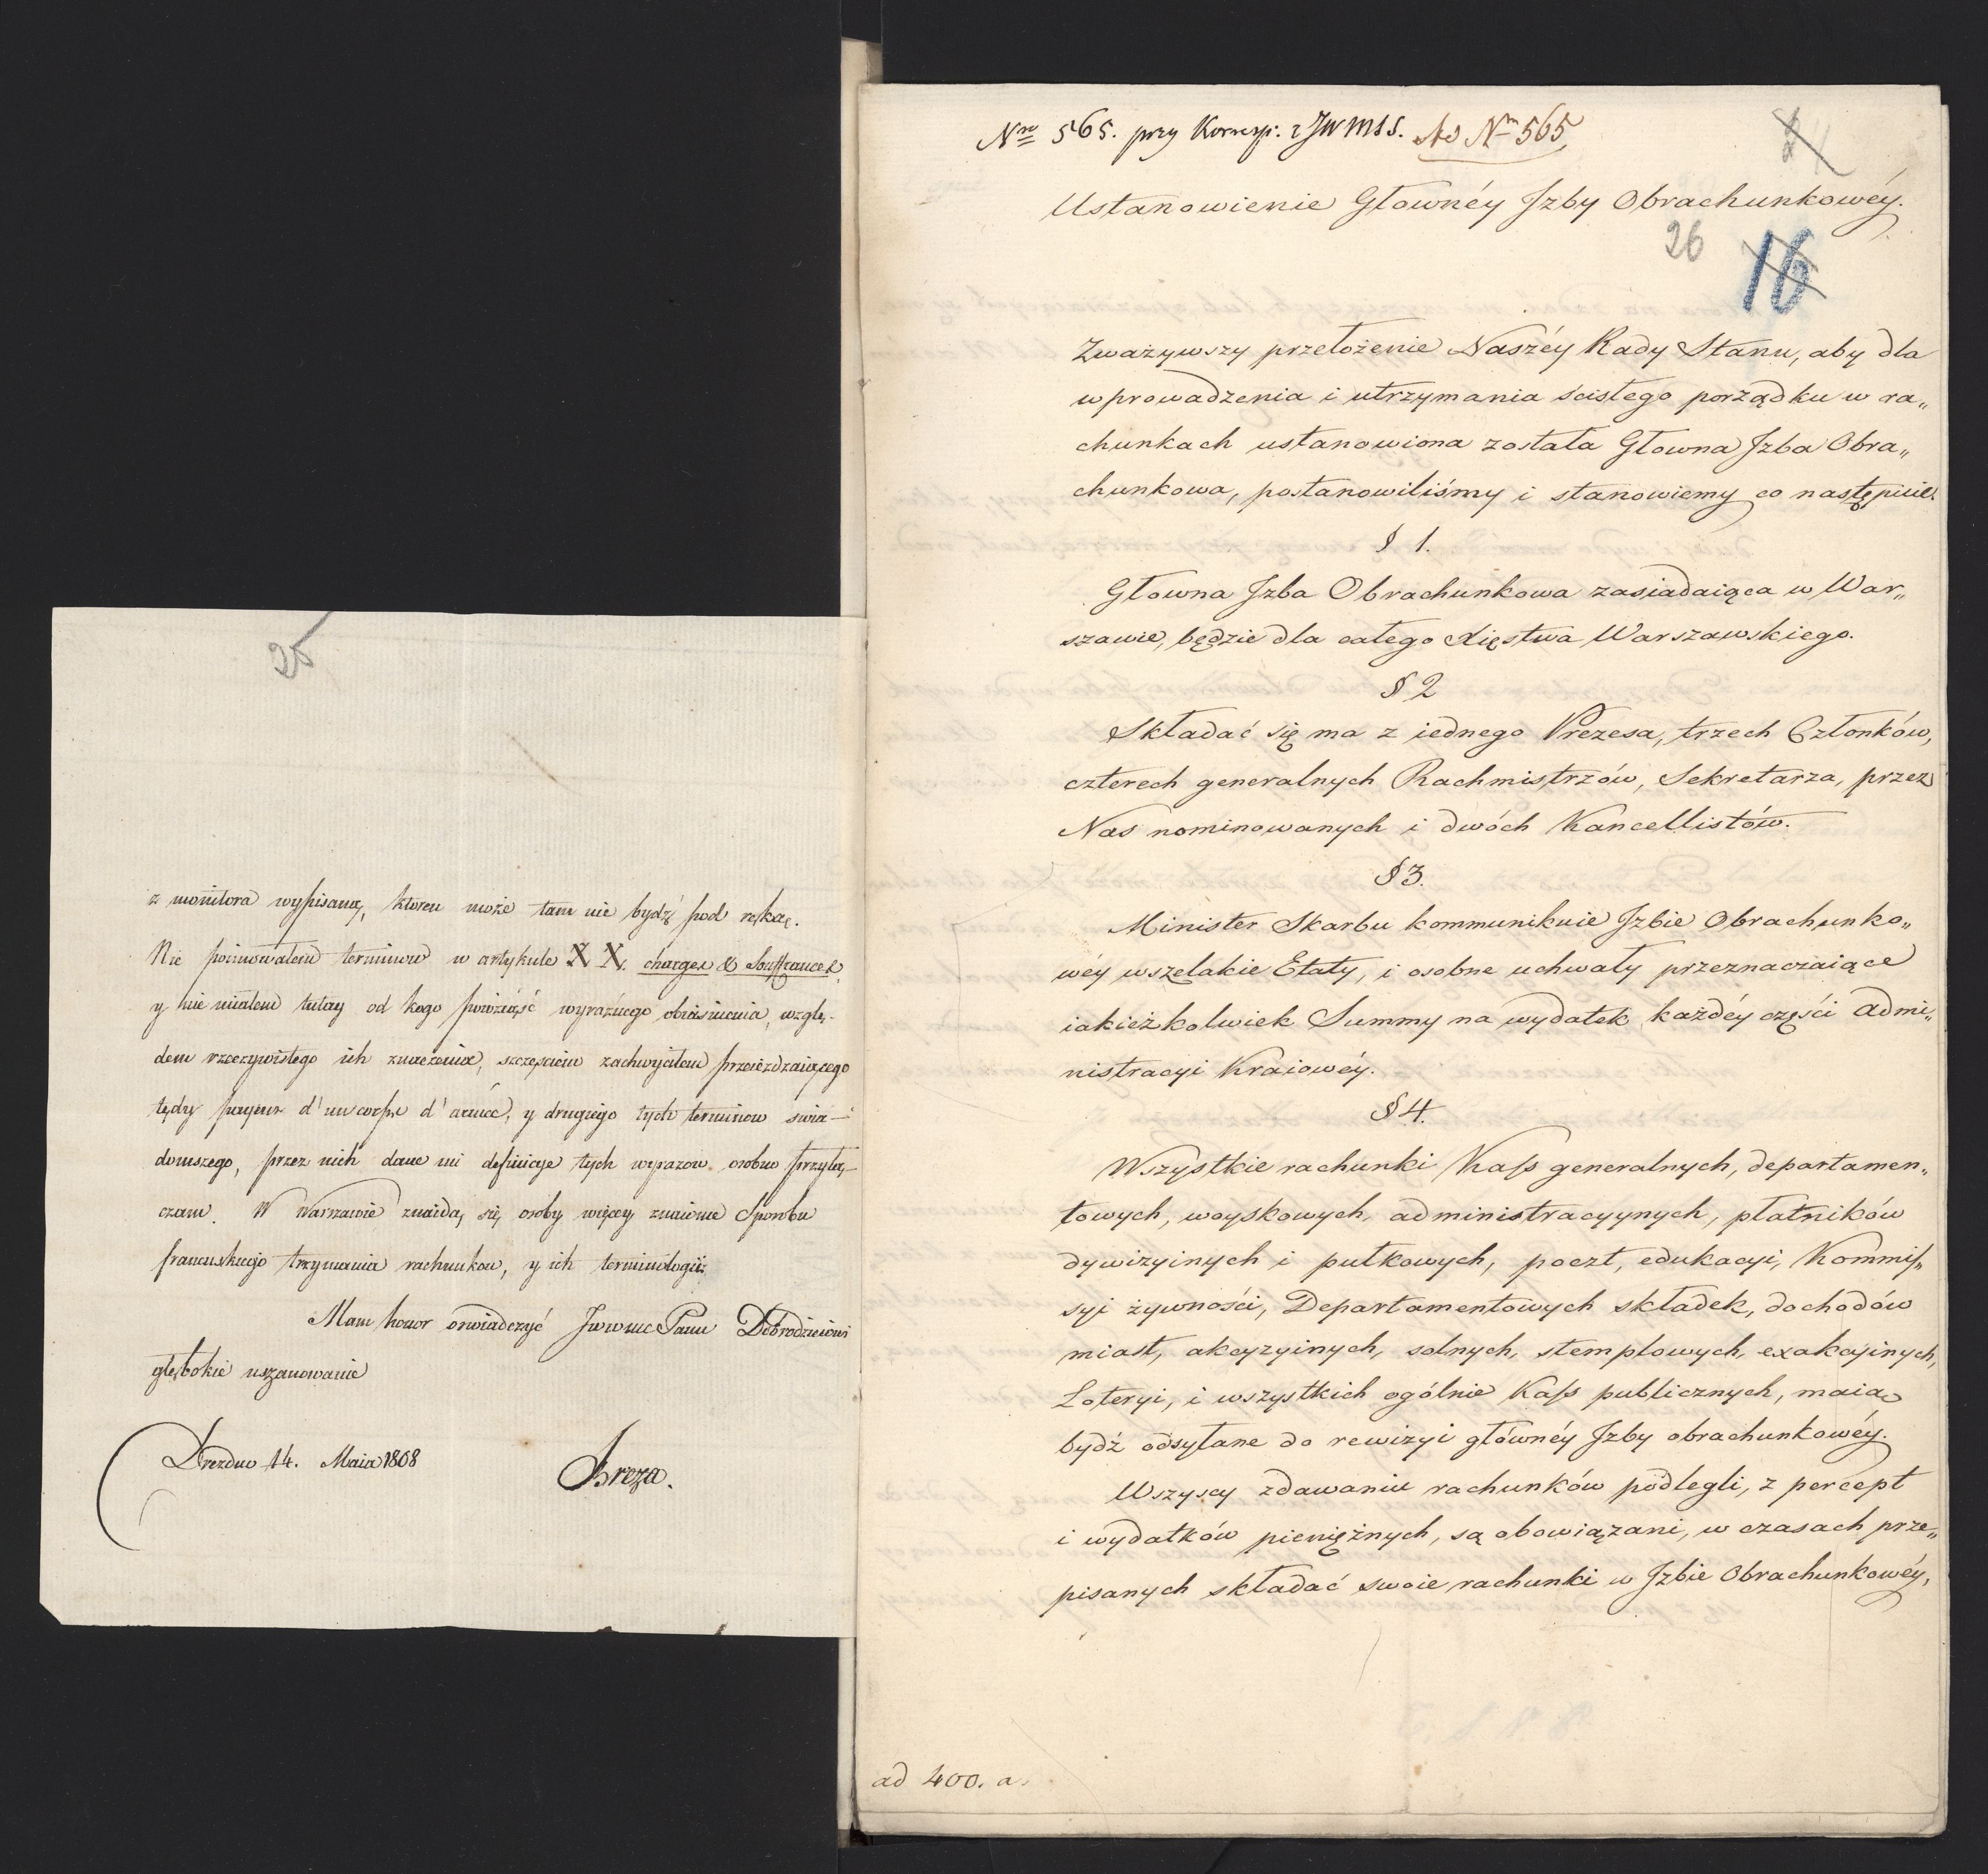 25
z monitora wypisaną, ktoren może tam nie bydź pod ręką.
Nie poimowałem terminow w artykule XX. charges & Souffrances,
y nie miałem tutay od kogo powziąść wyraźnego obiaśnienia, wzglę-
dem rzeczywistego ich znaczenia, szczęściem zachwyciłem przeieżdzaiącego
tędy payeur d'un corps d'armée, y drugiego tych terminow świa-
domszego, przez nich dane mi definicye tych wyrazow osobno przyłą-
czam. W Warszawie znaidą się osoby więcey znaiome Sposobu
francuskiego trzymania rachunkow, y ich terminologii.
Mam honor oświadczyć JWWmc Panu Dobrodzieiowi
głębokie uszanowanie
Drezdno 14. Maia 1808
Breza.
Nro 565. przy Korresp: z JW MSS. Ad Nm 565
24
Ustanowienie Głownéy Jzby Obrachunkowéy.
26 16
Zważywszy przełożenie Naszéy Rady Stanu, aby dla
wprowadzenia i utrzymania ścisłego porządku w ra„
chunkach ustanowiona została Głowna Jzba Obra„
chunkowa, postanowiliśmy i stanowiemy co następuie.
§ 1.
Głowna Jzba Obrachunkowa zasiadaiąca w War„
szawie, będzie dla całego Xięstwa Warszawskiego.
§ 2
Składać się ma z iednego Prezesa, trzech Członków,
czterech generalnych Rachmistrzów, Sekretarza, przez
Nas nominowanych i dwóch Kancellistów.
§ 3.
Minister Skarbu kommunikuie Jzbie Obrachunko„
wéy wszelakie Etaty, i osobne uchwały przeznaczaiące
iakieżkolwiek Summy na wydatek każdéy części admi„
nistracyi Kraiowéy.
§ 4.
Wszystkie rachunki Kass generalnych, departamen„
towych, woyskowych, administracyynych, płatników
dywizyinych i pułkowych, poczt, edukacyi, Kommis„
syi żywności, Departamentowych składek, dochodów
miast, akcyzyinych, solnych, stemplowych, exakcyinych,
Loteryi, i wszystkich ogólnie Kass publicznych, maią
bydź odsyłane do rewizyi głównéy Jzby obrachunkowéy.
Wszyscy zdawaniu rachunków podlegli, z percept
i wydatków pieniężnych, są obowiązani, w czasach prze„
pisanych składać swoie rachunki w Jzbie Obrachunkowéy,
ad 400. a.